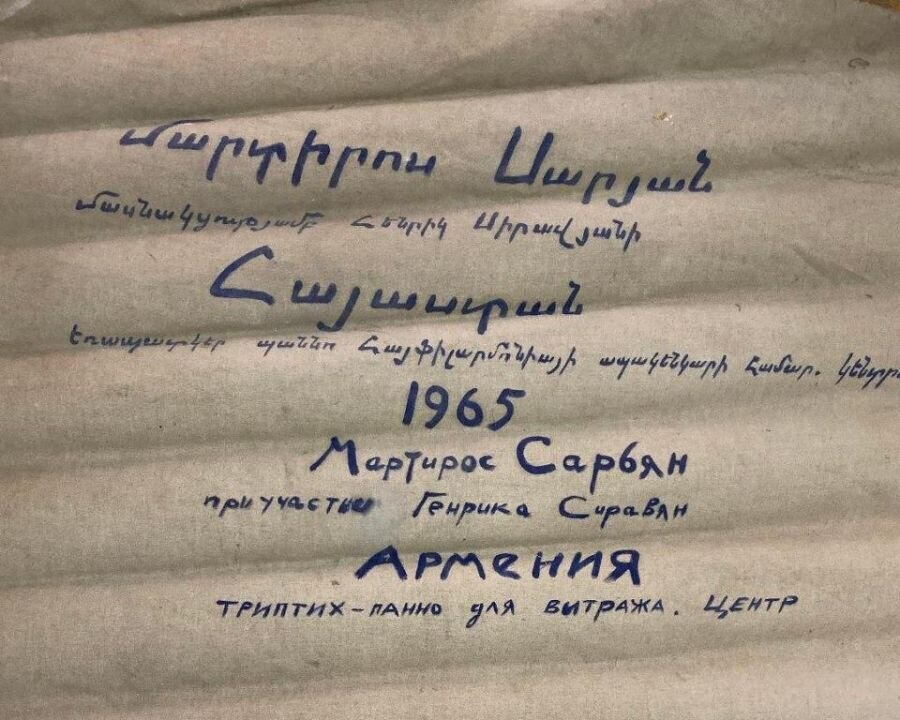 Մարտիրոս Սարյան
Մասնակցությամբ Հենրիկ Սիրավյանի
Հայաստան
Եռապատկեր պաննո Հայֆիլարմոնիայի ապակենկարի համար. կենտրո
1965
Мартирос Сарьян
при участии Генрика Сиравян
Армения
триптих-панно для витража. Центр